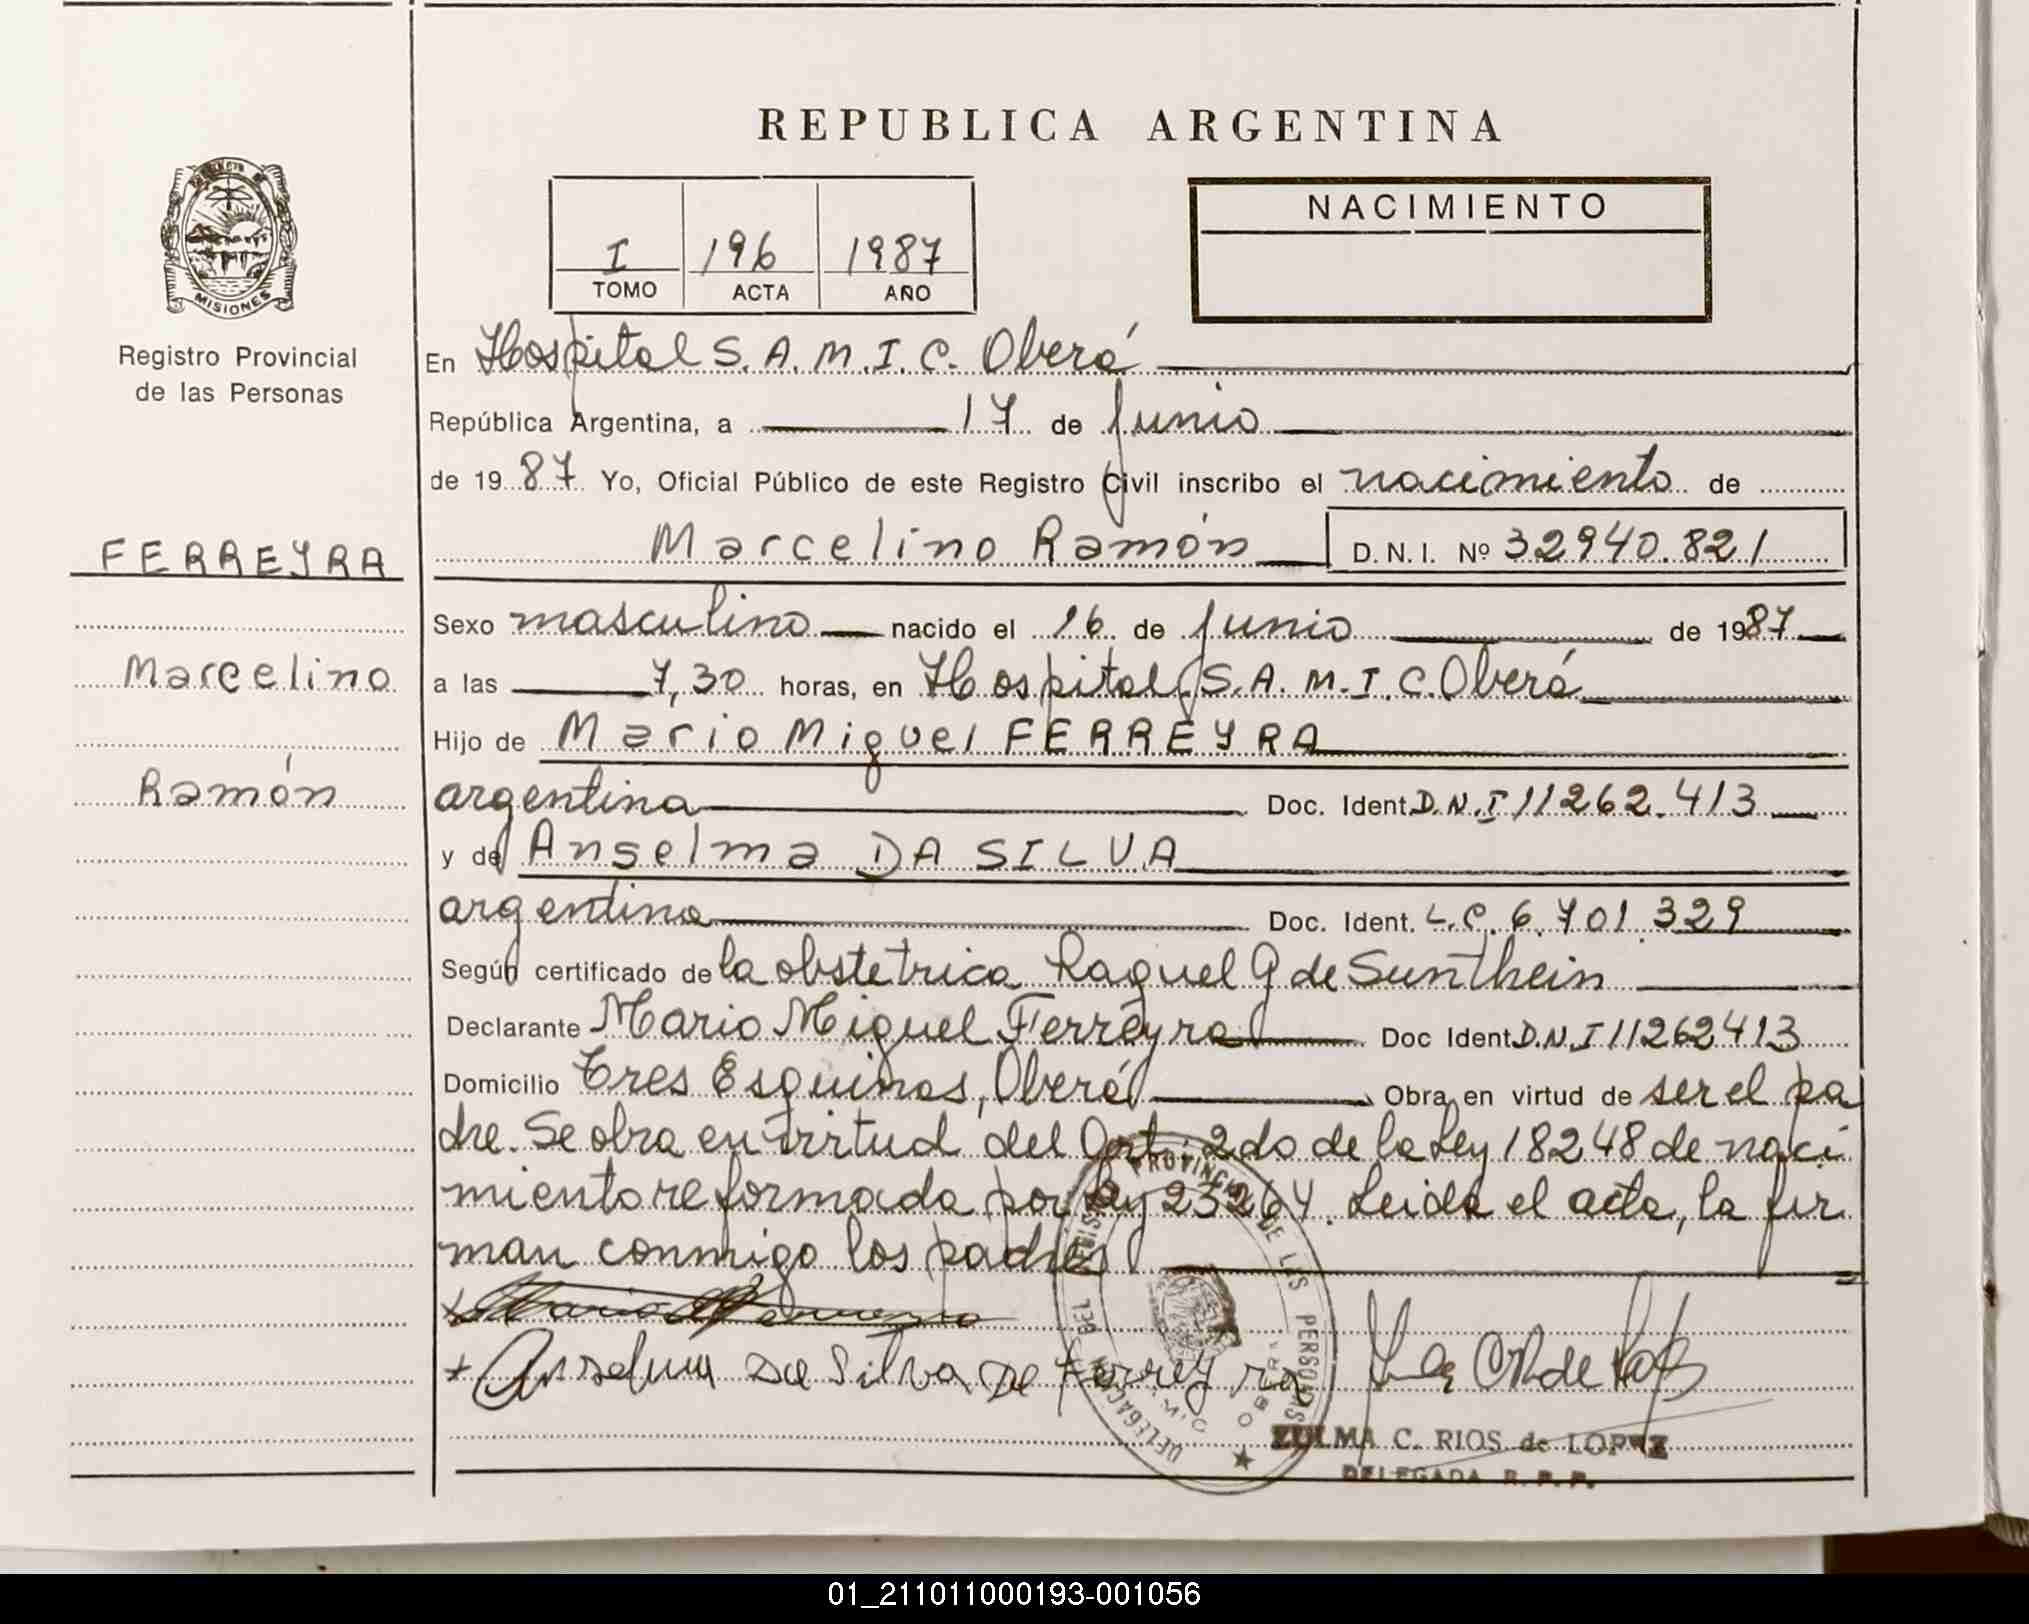 REPUBLICA ARGENTINA
NACIMIENTO
I 196 1987
TOMO ACTA AÑO
MISIONES
Registro Provincial
de las Personas
FERREYRA
Marcelino
Ramón
En Hospital S.A.M.I.C. Oberá
República Argentina, a 17 de Junio
de 1987 Yo, Oficial Público de este Registro Civil inscribo el nacimiento de
Marcelino Ramón D.N.I. Nº 32940.821
Sexo masculino nacido el 16 de Junio de 1987
a las 7,30 horas, en Hospital S.A.M.I.C. Oberá
Hijo de Mario Miguel FERREYRA
argentina Doc. Ident. D.N.I 11262.413
y de Anselma DA SILVA
argentina Doc. Ident. L.C. 6.701.329
Según certificado de la obstetrica Raquel G de Sunthein
Declarante Mario Miguel Ferreyra Doc Ident. D.N.I 11262413
Domicilio Tres Esquinas, Oberá Obra en virtud de ser el pa
dre. Se obra en virtud del Art. 2do de la Ley 18248 de naci
miento reformada por ley 23264. Leida el acta, la fir
man conmigo los padres
Anselma Da Silva De Ferreyra
PROVINCIAL DE LAS PERSONAS
DELEGACION
OBERA
ZULMA C. RIOS de LOPEZ
DELEGADA R.P.P.
01_211011000193-001056